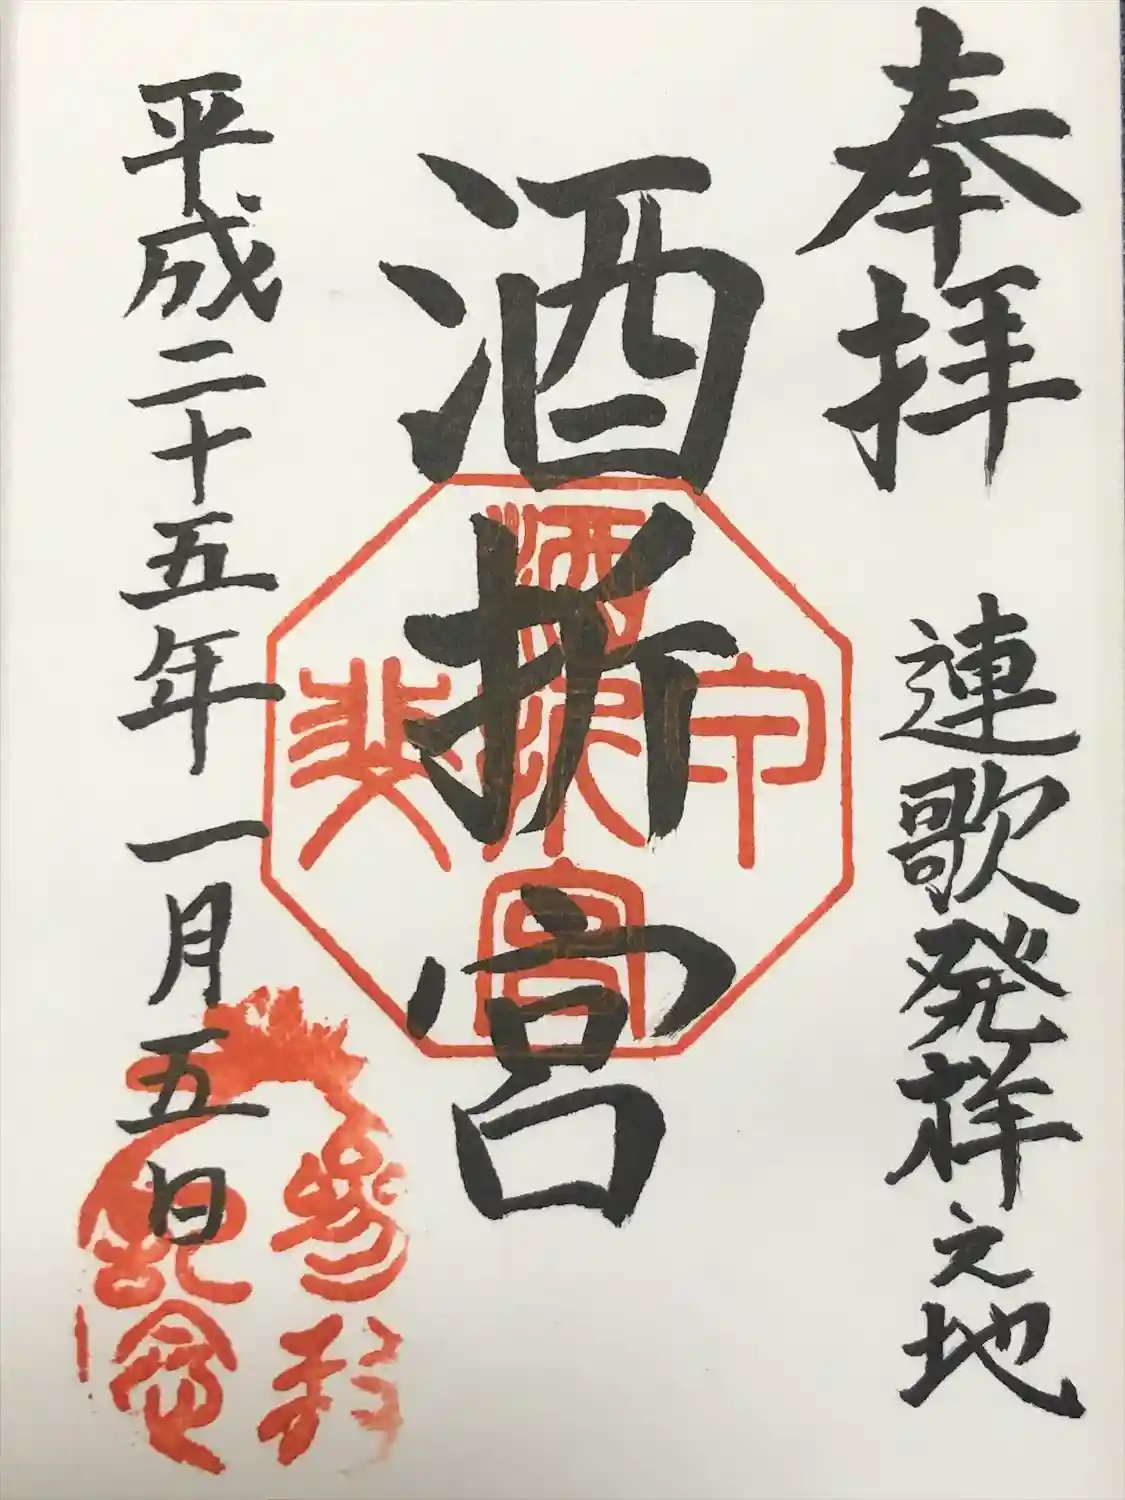 奉拝 連歌発祥之地
酒折宮
平成二十五年一月五日
酒折宮
参拝
記念